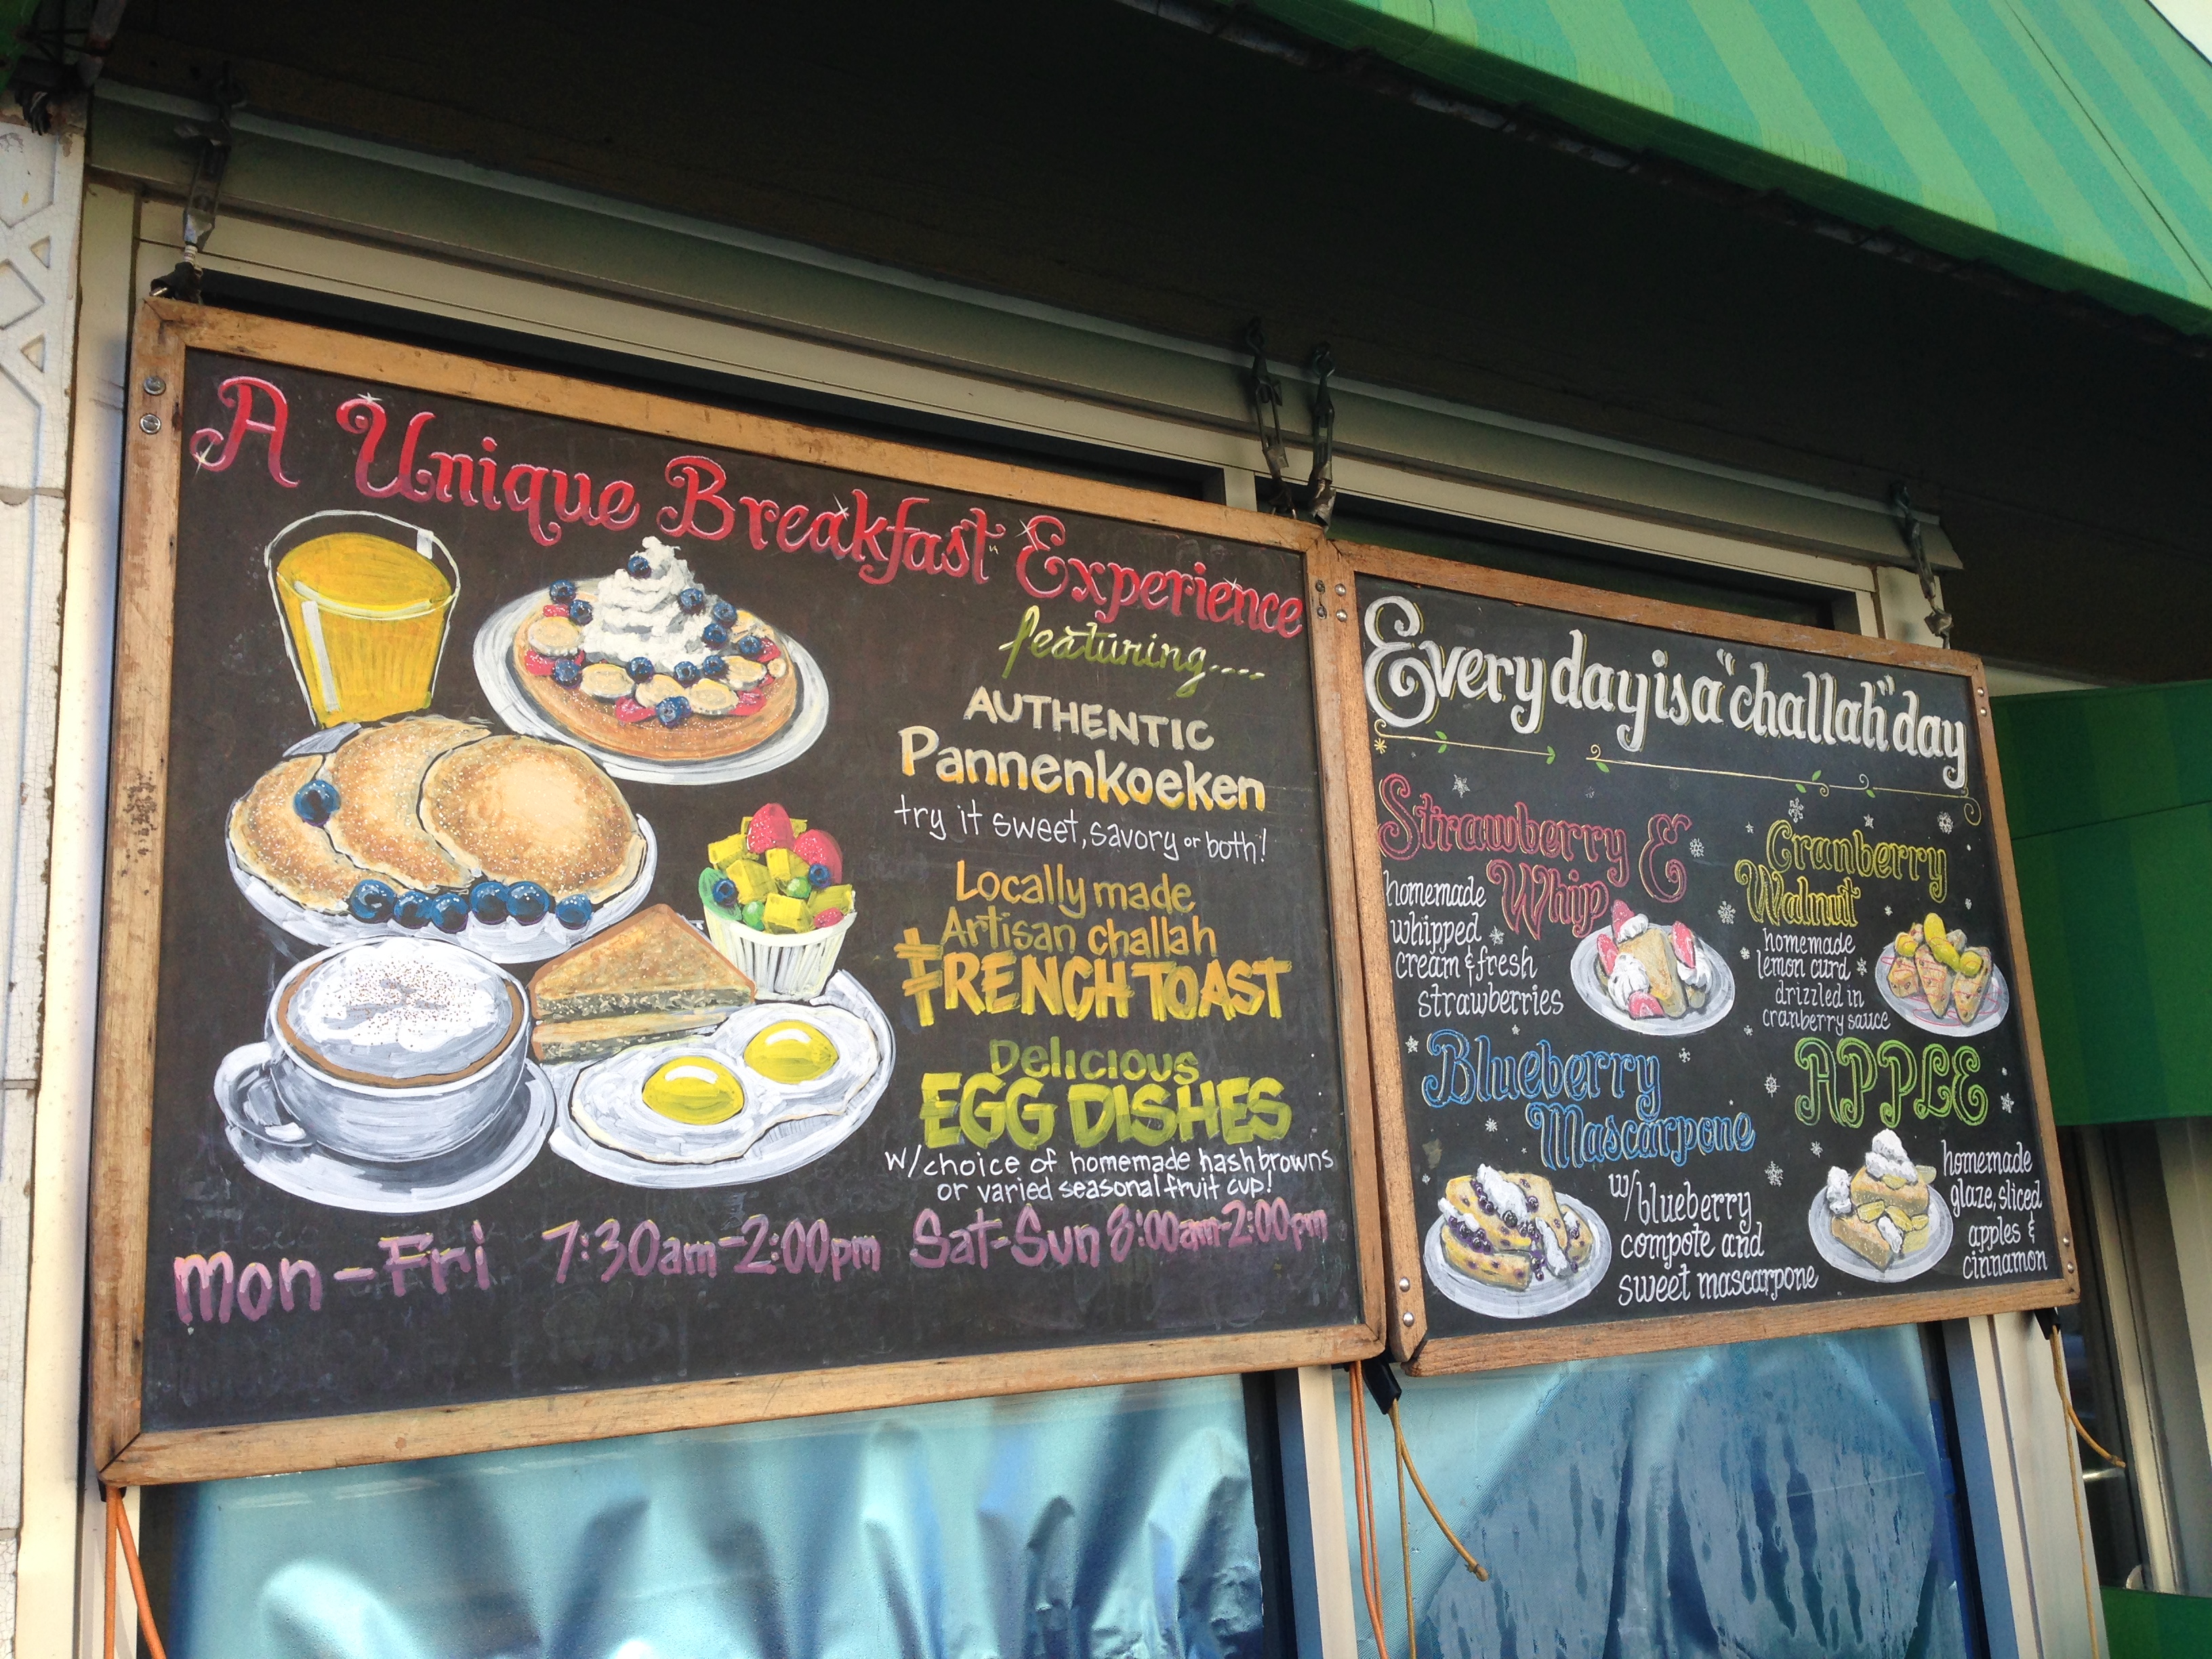 A Unique Breakfast Experience
featuring....
AUTHENTIC
Pannenkoeken
try it sweet, savory or both!
Locally made
Artisan challah
FRENCH TOAST
Delicious
EGG DISHES
w/choice of homemade hashbrowns
or varied seasonal fruit cup!
Mon-Fri 7:30am-2:00pm Sat-Sun 8:00am-2:00pm
Everyday is a "challah" day
Strawberry &
Whip
homemade
whipped
cream & fresh
strawberries
Cranberry
Walnut
homemade
lemon curd
drizzled in
cranberry sauce
Blueberry
Mascarpone
w/blueberry
compote and
sweet mascarpone
APPLE
homemade
glaze, sliced
apples &
cinnamon